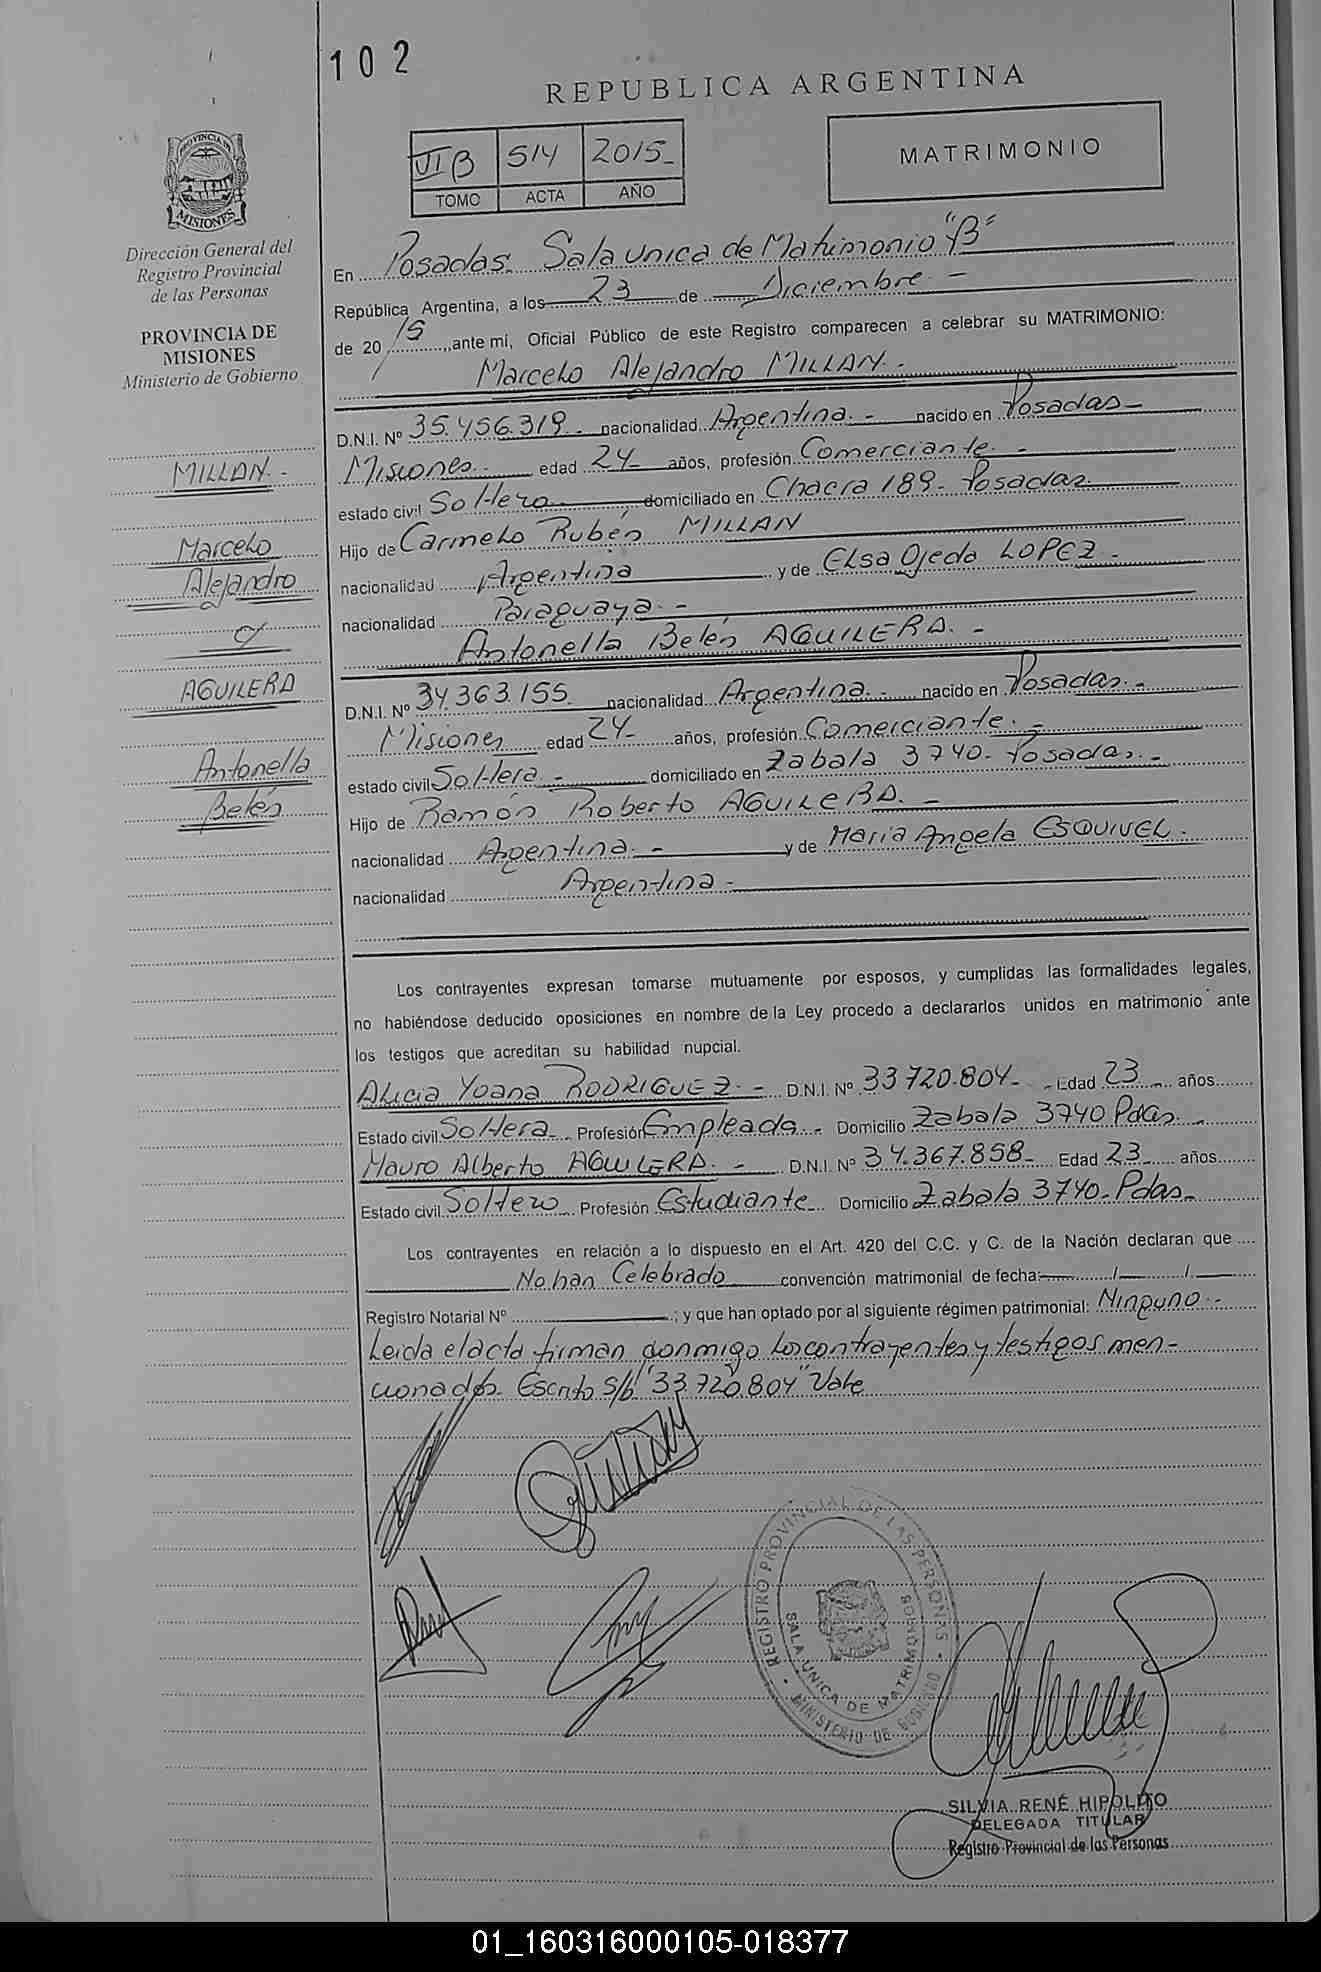 102
REPUBLICA ARGENTINA
VI B 514 2015_
TOMO ACTA AÑO
MATRIMONIO
PROVINCIA DE MISIONES
Dirección General del
Registro Provincial
de las Personas
PROVINCIA DE
MISIONES
Ministerio de Gobierno
MILLAN.-
Marcelo
Alejandro
c/
AGUILERA
Antonella
Belén
En Posadas. Sala unica de Matrimonio "B"
República Argentina, a los 23 de Diciembre.-
de 2015, ante mi, Oficial Público de este Registro comparecen a celebrar su MATRIMONIO:
Marcelo Alejandro MILLAN.-
D.N.I. Nº 35.456.319.- nacionalidad Argentina.- nacido en Posadas-
Misiones.- edad 24- años, profesión Comerciante.-
estado civil Soltero domiciliado en Chacra 189- Posadas
Hijo de Carmelo Rubén MILLAN
nacionalidad Argentina y de Elsa Ojeda LOPEZ-
nacionalidad Paraguaya.-
Antonella Belén AGUILERA.-
D.N.I. Nº 34.363.155. nacionalidad Argentina.- nacido en Posadas.-
Misiones edad 24- años, profesión Comerciante.-
estado civil Soltera.- domiciliado en Zabala 3740- Posadas.-
Hijo de Ramón Roberto AGUILERA.-
nacionalidad Argentina.- y de Maria Angela ESQUIVEL.
nacionalidad Argentina-
Los contrayentes expresan tomarse mutuamente por esposos, y cumplidas las formalidades legales,
no habiéndose deducido oposiciones en nombre de la Ley procedo a declararlos unidos en matrimonio ante
los testigos que acreditan su habilidad nupcial.
Alicia Yoana RODRIGUEZ.- D.N.I. Nº 33720.804- Edad 23 años
Estado civil Soltera- Profesión Empleada.- Domicilio Zabala 3740 Pdas.-
Mauro Alberto AGUILERA.- D.N.I. Nº 34.367.858- Edad 23 años
Estado civil Soltero Profesión Estudiante Domicilio Zabala 3740- Pdas-
Los contrayentes en relación a lo dispuesto en el Art. 420 del C.C. y C. de la Nación declaran que
No han Celebrado convención matrimonial de fecha: / /
Registro Notarial Nº ; y que han optado por al siguiente régimen patrimonial: Ninguno.-
Leida el acta firman conmigo los contrayentes y testigos men-
cionados. Escrito s/b "33720804" Vale
REGISTRO PROVINCIAL DE LAS PERSONAS - MINISTERIO DE GOBIERNO -
SALA UNICA DE MATRIMONIOS
SILVIA RENÉ HIPOLITO
DELEGADA TITULAR
Registro Provincial de las Personas
01_160316000105-018377